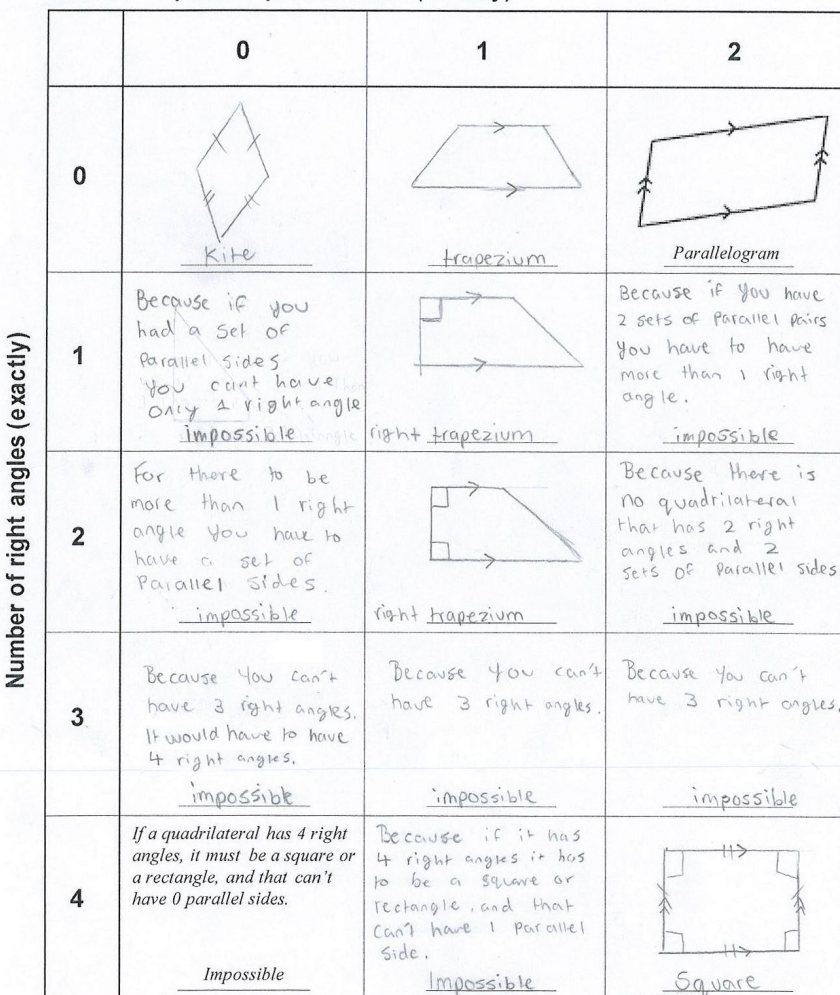 0
1
2
Number of right angles (exactly)
0
Kite
trapezium
Parallelogram
1
Because if you
had a set of
Parallel sides
you can't have
only 1 right angle
impossible
right trapezium
Because if you have
2 sets of parallel pairs
you have to have
more than 1 right
angle.
impossible
2
For there to be
more than 1 right
angle you have to
have a set of
Parallel sides.
impossible
right trapezium
Because there is
no quadrilateral
that has 2 right
angles and 2
sets of parallel sides
impossible
3
Because you can't
have 3 right angles.
It would have to have
4 right angles.
impossible
Because you can't
have 3 right angles.
impossible
Because you can't
have 3 right angles.
impossible
4
If a quadrilateral has 4 right
angles, it must be a square or
a rectangle, and that can't
have 0 parallel sides.
Impossible
Because if it has
4 right angles it has
to be a square or
rectangle, and that
can't have 1 parallel
side.
Impossible
Square